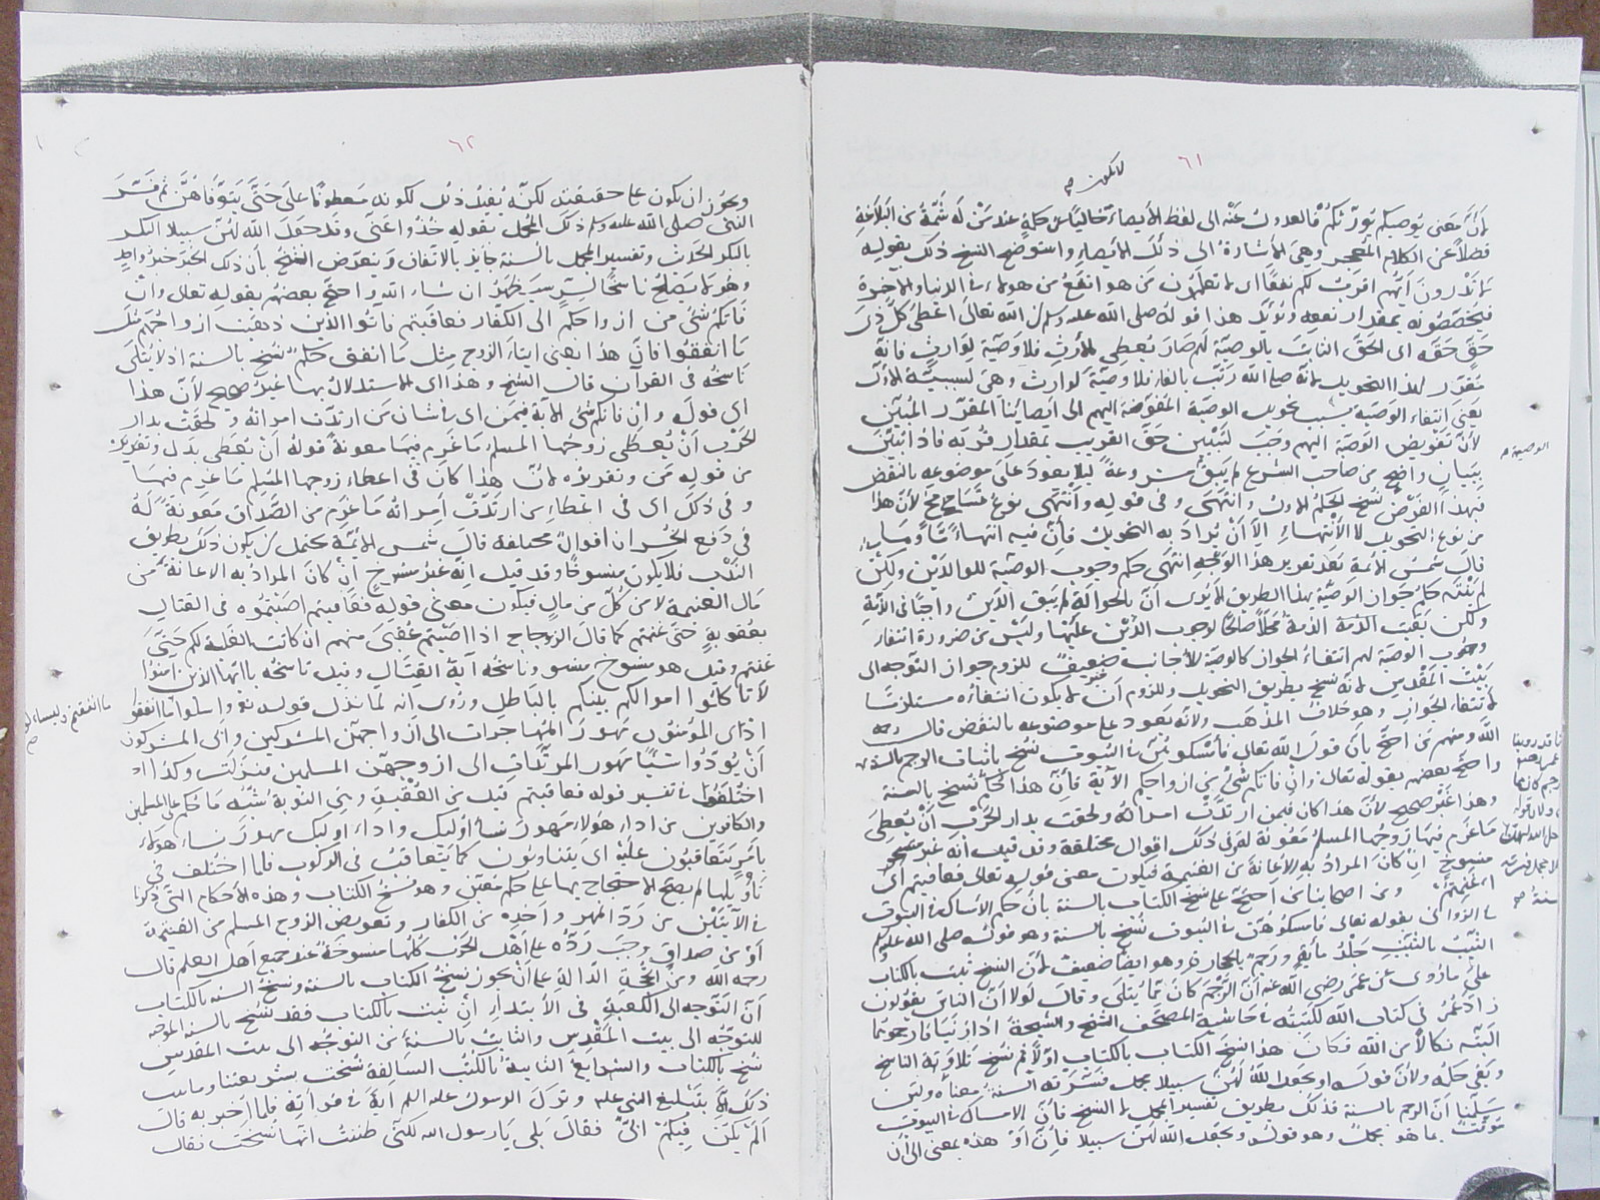 ٦١
لا تكون صح
لأن معنى يوصيكم يورثكم فالعدول عنه إلى لفظ الأيصاء خاليا عن حكمة عند من له شمة من البلاغة
فضلا عن الكلام المعجز وهي الأشارة إلى ذلك الأيصاء واستوضح الشيخ ذلك بقوله
لا تدرون أيهم أقرب لكم نفعا أي لا تعلمون من هو أنفع من هولاء في الدنيا والآخرة
بمقدار نفعه ويؤيد هذا قوله صلى الله عليه وسلم إن الله تعالى أعطى كل ذي
حق حقه أي الحق الثابت بالوصية لهم صار يعطى بالأرث فلا وصية لوارث فانه
لهذا التحويل لأنه صلى الله رتب بالفاء فلا وصية لوارث وهي لسببية الأول
يعني انتفاء الوصية بسبب تحويل الوصية المفوضة إليهم إلى ايصائنا المقدر المبين
لأن تفويض الوصية إليهم وجب لتبيين حق القريب بمقدار قربه فإذا تبين
ببيان واضح من صاحب الشرع لم يبق مشروعة لئلا يعود على موضوعه بالنقض
فبهذا الفرض نسخ الحكم الأول وانتهى وفي قوله وانتهى نوع تسامح لأن هذا
من نوع التحويل لا الأنتهاء إلا أن يراد به التحويل فأن فيه انتهاء
قال شمس الأئمة بعد تقرير هذا الوجه انتهى حكم وجوب الوصية للوالدين ولكن
لم ينته حكم جواز الوصية بهذا الطريق ألا يرى أن بالحوالة لم يبق الدين واجبا في الذمة
ولكن بقيت الذمة محلا صالحا لوجوب الدين عليها وليس من ضرورة انتفاء
وجوب الوصية لهم انتفاء الجواز كالوصية للأجانب ضعيف للزوم جواز التوجه إلى
بيت المقدس لأنه نسخ بطريق التحويل وللزوم أن لا يكون انتفاؤه مستلزما
لأنتفاء الجواز وهو خلاف المذهب ولأنه يعود على موضوعه بالنقض قال رحمه
الله ومنهم من احتج بأن قول الله تعالى فأمسكوهن في البيوت نسخ باثبات الرجم بالسنة
واحتج بعضهم بقوله تعالى وإن فاتكم شيء من أزواجكم الآية فأن هذا حكم نسخ بالسنة
وهذا غير صحيح لأن هذا كان فيمن ارتدت امرأته ولحقت بدار الحرب أن يعطي
ما غرم فيها زوجها المسلم معونة له وفي ذلك أقوال مختلفة وقد قيل أنه غير منسوخ
إن كان المراد به الإعانة من الغنيمة فيكون معنى قوله تعالى فعاقبتم أي
ومن أصحابنا من احتج على نسخ الكتاب بالسنة بأن حكم الأمساك في البيوت
في الزواني بقوله تعالى فأمسكوهن في البيوت نسخ بالسنة وهو قوله صلى الله عليه وسلم
الثيب بالثيب جلد مأية ورجم بالحجارة وهو أيضا ضعيف لأن النسخ ثبت بالكتاب
على ما روى عن عمر رضي الله عنه أن الرجم كان مما يتلى وقال لولا أن الناس يقولون
زاد عمر في كتاب الله لكتبته في حاشية المصحف الشيخ والشيخة إذا زنيا فارجموهما
البتة نكالا من الله فكان هذا نسخ الكتاب بالكتاب أولا ثم نسخ تلاوة الناسخ
وبقي حكمه ولأن قوله أو يجعل الله لهن سبيلا مجمل فسرته السنة معناه ولئن
سلمنا أن الرجم بالسنة فذلك بطريق تفسير المجمل لا النسخ فأن الإمساك في البيوت
موقت بما هو مجمل وهو قوله ويجعل الله لهن سبيلا فإن أو هذه بمعنى إلى أن
الوصية صح
٦٢
ويجوز أن يكون على حقيقته لكنه يفيد ذلك لكونه معطوفا على حتى يتوفاهن ثم فسر
النبي صلى الله عليه وسلم ذلك المجمل بقوله خذوا عني وقد جعل الله لهن سبيلا البكر
بالبكر الحديث وتفسير المجمل بالسنة جايز بالاتفاق بأن ذلك الخبر خبر واحد
وهو لا يصلح ناسخا سيظهر إن شاء الله احتج بعضهم بقوله تعالى وإن
فاتكم شيء من أزواجكم إلى الكفار فعاقبتم فآتوا الذين ذهبت أزواجهم مثل
ما انفقوا فان هذا يعني ايتاء الزوج مثل ما انفق حكم نسخ بالسنة إذ لا يتلى
ناسخه في القرآن قال الشيخ وهذا أي الاستدلال بها غير صحيح لأن هذا
أي قوله وإن فاتكم شيء الآية فيمن أي في شان من ارتدت امرأته ولحقت بدار
الحرب أن يعطى زوجها المسلم ما غرم فيها معونة قوله أن يعطى بدل وتفريد
من قوله من وتقديره لأن هذا كان في اعطاء زوجها المسلم ما غرم فيها
وفي ذلك أي في اعطاء من ارتدت امرأته ما غرم من الصداق معونة له
في دفع الخسران أقوال مختلفة قال شمس الأئمة يحتمل أن يكون ذلك بطريق
الندب فلا يكون منسوخا وقد قيل إنه غير منسوخ إن كان المراد به الاعانة من
مال الغنيمة لا من كل من مال فيكون معنى قوله فعاقبتم أصبتموه في القتال
بعقوبة حتى غنمتم كما قال الزجاج إذا أصبتم عقبى منهم أن كانت الغلبة لكم حتى
غنمتم وقيل هو منسوخ وناسخه آية القتال وقيل ناسخه يا أيها الذين آمنوا
لا تأكلوا أموالكم بينكم بالباطل وروى انه لما نزل قوله تع واسئلوا ما انفقوا
ادى المؤمنون مهور المهاجرات إلى أزواجهن المشركين وابى المشركون
أن يؤدوا شيئا من مهور المرتدات إلى أزوجهن المسلمين فنزلت وكذا
اختلفوا في تفسير قوله فعاقبتم قيل من العقبة وهي النوبة شبه ما حكم على المسلمين
والكافرين من أداء هؤلاء مهور نساء أوليك واداء اوليك مهور نساء هولاء
بامر يتعاقبون عليه أي يتناوبون كما يتعاقب في الركوب فلما اختلف في
تأويلها لم يصح الاحتجاج بها على حكم معين وهو نسخ الكتاب وهذه الأحكام التي ذكرنا
في الآيتين من رد المهر واخذه من الكفار وتعويض الزوج المسلم من الغنيمة
أو من صداق وجب رده على أهل الحرب كلها منسوخة عند جميع أهل العلم قال
رحمه الله ومن الحجة الدالة على أن يجوز نسخ الكتاب بالسنة ونسخ السنة بالكتاب
أن التوجه إلى الكعبة في الأبتداء إن ثبت بالكتاب فقد نسخ بالسنة الموجبة
للتوجه إلى بيت المقدس والثابت بالسنة من التوجه إلى بيت المقدس
نسخ بالكتاب والشرايع الثابتة بالكتب السالفة نسخت بشريعتنا وما ثبت
ذلك إلا بتبليغ النبي عليه وترك الرسول عليه السلم آية في قراته فلما أخبر به قال
ألم يكن فيكم أبي فقال بلى يا رسول الله لكني ظننت أنها نسخت فقال